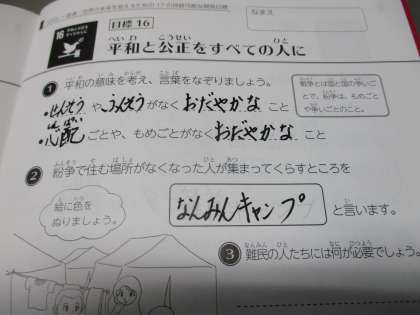 目標 16
なまえ
16 平和と公正をすべての人に
平和と公正をすべての人に
1 平和の意味を考え、言葉をなぞりましょう。
・せんそう や ふんそう がなく おだやかな こと
・心配ごとや、もめごとがなく おだやかな こと
戦争とは国と国の争いごとで、紛争は、もめごとや争いごとのこと。
2 紛争で住む場所がなくなった人が集まってくらすところを
なんみんキャンプ と言います。
絵に色を
ぬりましょう。
3 難民の人たちには何が必要でしょう。